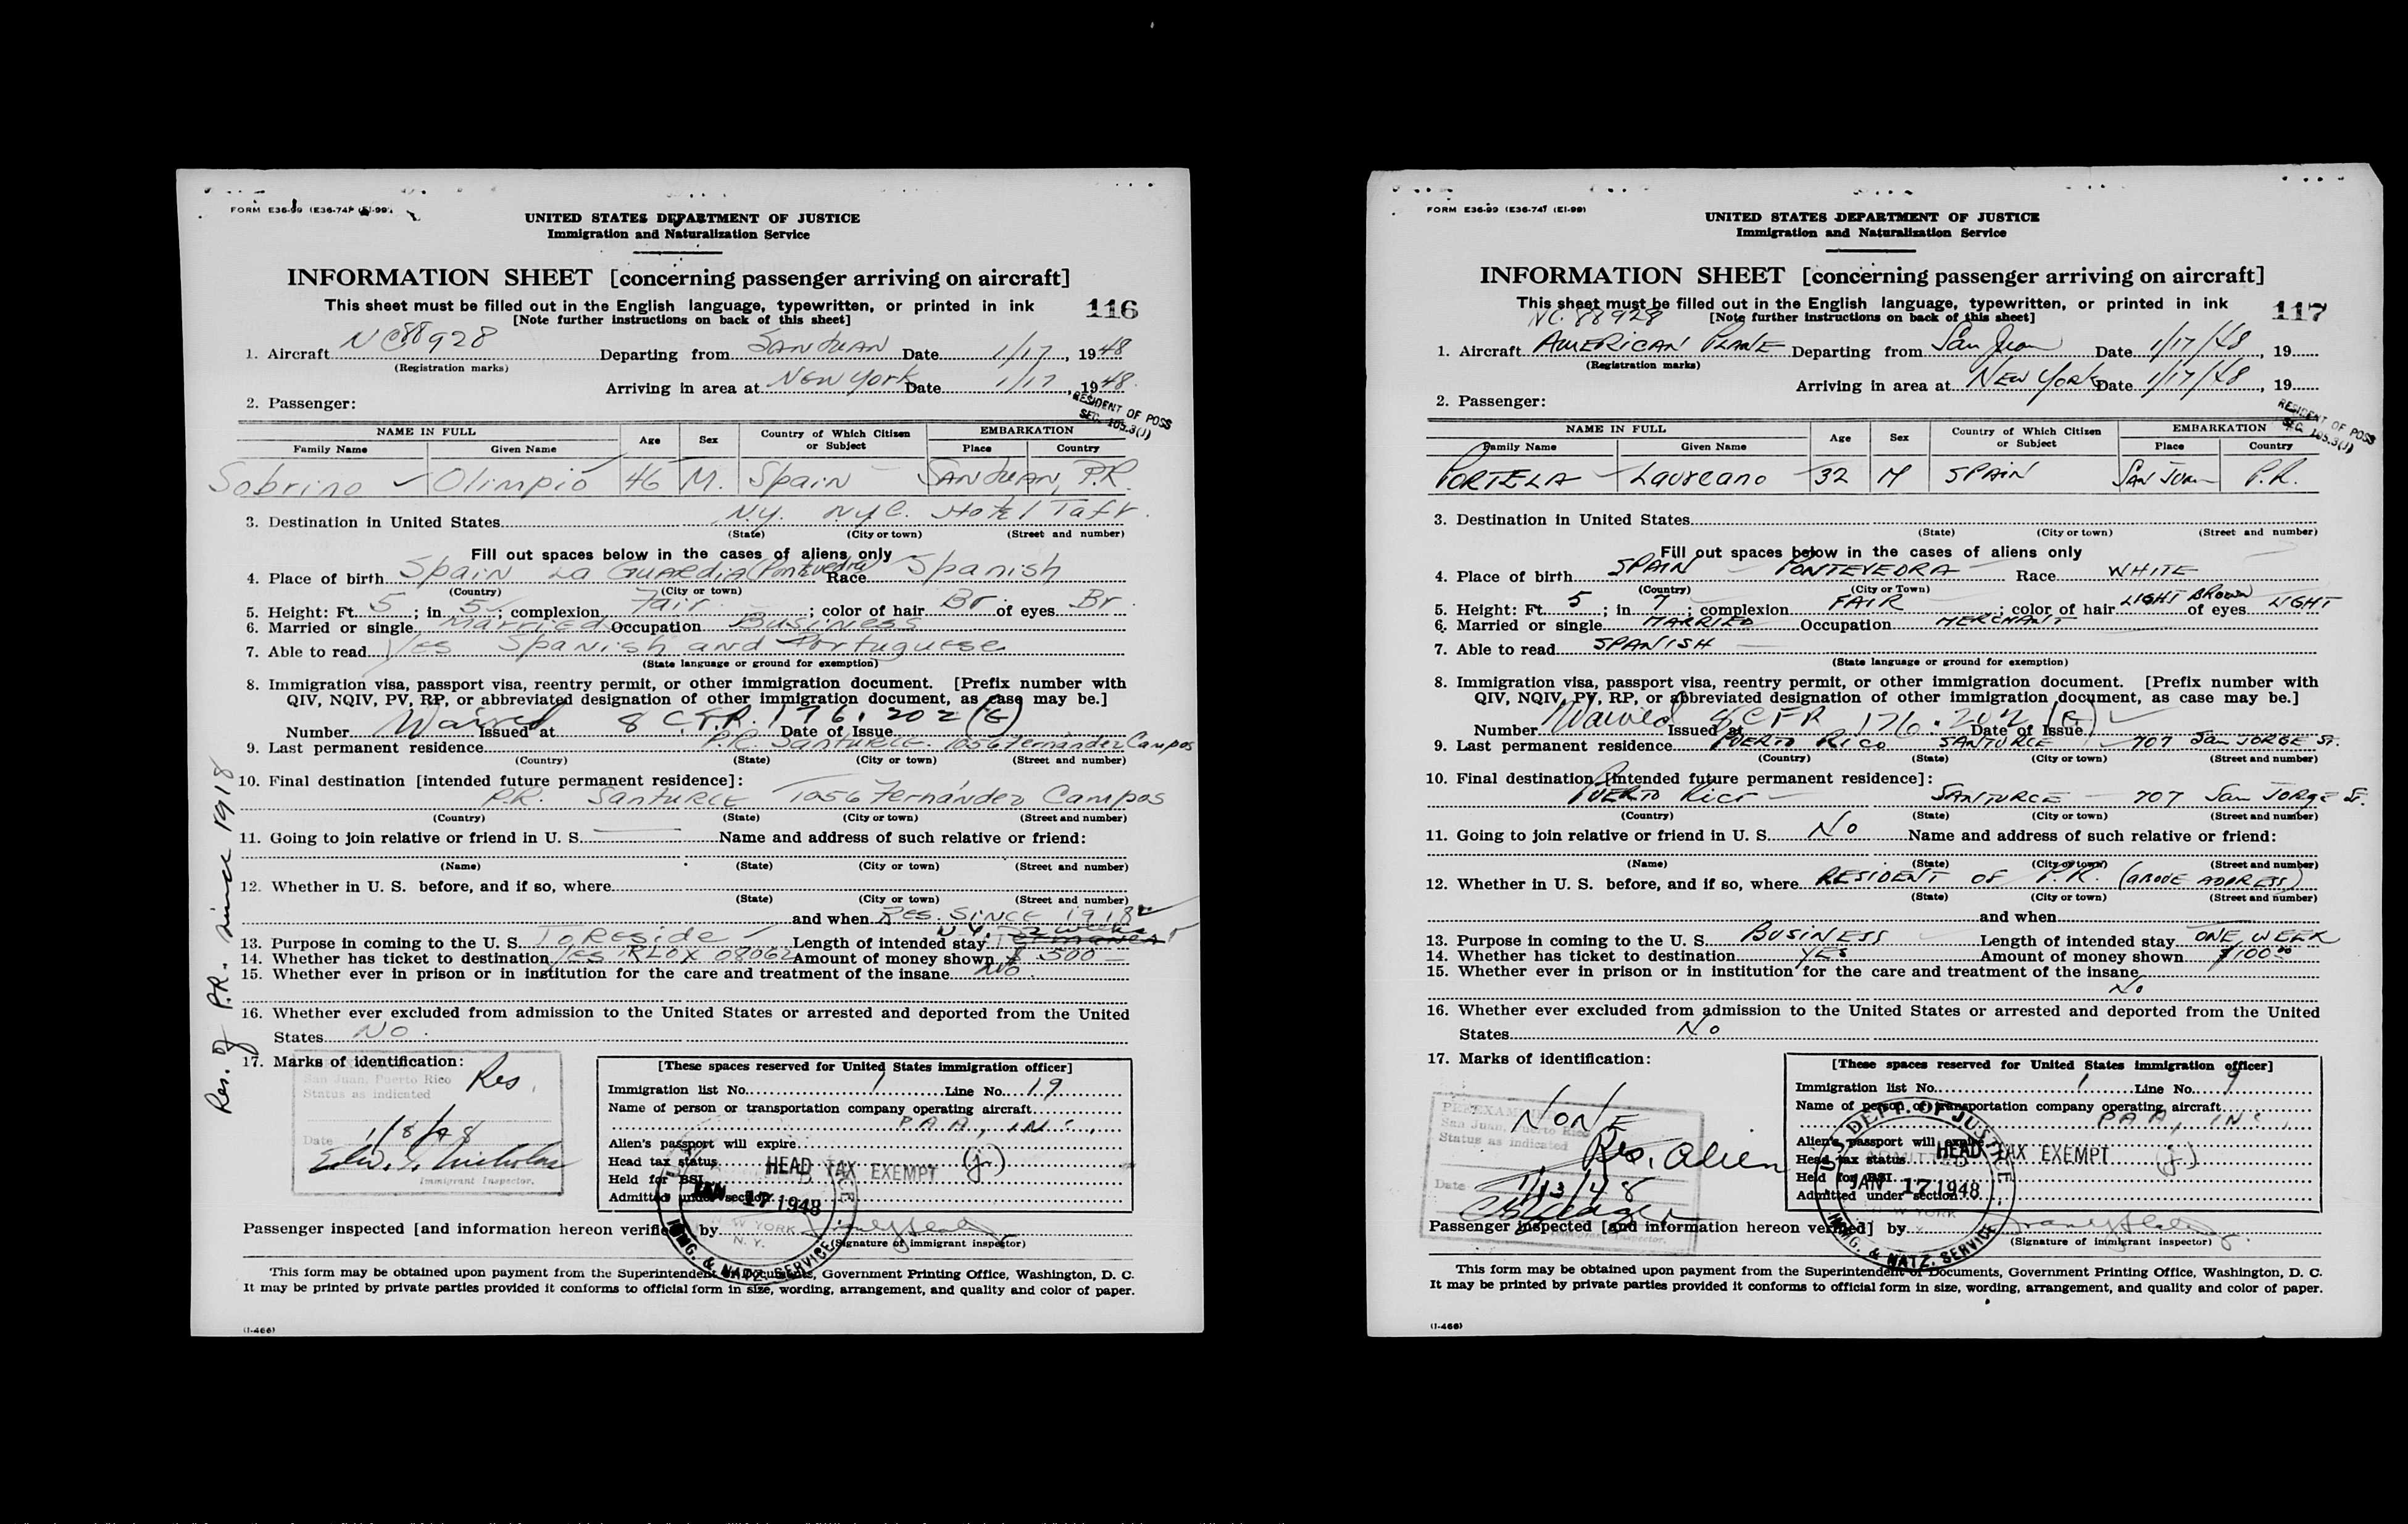 FORM E36-99 (E36-74) (EI-99)
UNITED STATES DEPARTMENT OF JUSTICE
Immigration and Naturalization Service
INFORMATION SHEET [concerning passenger arriving on aircraft]
This sheet must be filled out in the English language, typewritten, or printed in ink
[Note further instructions on back of this sheet]
116
1. Aircraft NC88928 Departing from SAN JUAN Date 1/17, 1948
(Registration marks)
Arriving in area at NEW YORK Date 1/17, 1948.
2. Passenger:
RESIDENT OF POSS
SEC. 105.3(J)
NAME IN FULL Age Sex Country of Which Citizen or Subject EMBARKATION
Family Name Given Name Place Country
Sobrino Olimpio 46 M. Spain SAN JUAN, P.R.
3. Destination in United States N.Y. NYC. Hotel Taft.
(State) (City or town) (Street and number)
Fill out spaces below in the cases of aliens only
4. Place of birth Spain La Guardia (Pontevedra) Race Spanish
(Country) (City or town)
5. Height: Ft. 5; in 5; complexion Fair; color of hair Br. of eyes Br.
6. Married or single Married Occupation Business
7. Able to read Yes Spanish and Portuguese
(State language or ground for exemption)
8. Immigration visa, passport visa, reentry permit, or other immigration document. [Prefix number with
QIV, NQIV, PV, RP, or abbreviated designation of other immigration document, as case may be.]
Number Waived Issued at 8 C.F.R. 176.202(G) Date of Issue
9. Last permanent residence P.R. Santurce. 1056 Fernández Campos
(Country) (State) (City or town) (Street and number)
10. Final destination [intended future permanent residence]:
P.R. Santurce 1056 Fernández Campos
(Country) (State) (City or town) (Street and number)
11. Going to join relative or friend in U. S. Name and address of such relative or friend:
(Name) (State) (City or town) (Street and number)
12. Whether in U. S. before, and if so, where
(State) (City or town) (Street and number)
and when RES. SINCE 1918
N.Y. 2 weeks
13. Purpose in coming to the U. S. To Reside Length of intended stay Permanent
14. Whether has ticket to destination Yes RLOX 08062 Amount of money shown $ 500 —
15. Whether ever in prison or in institution for the care and treatment of the insane No.
16. Whether ever excluded from admission to the United States or arrested and deported from the United
States NO.
Res. of P.R. since 1918
17. Marks of identification:
San Juan, Puerto Rico
Status as indicated
Res.
Date 1/8/48
Edw. S. Nicholas
Immigrant Inspector.
[These spaces reserved for United States immigration officer]
Immigration list No. 1 Line No. 19
Name of person or transportation company operating aircraft
P.A.A., INC.,
Alien's passport will expire
Head tax status HEAD TAX EXEMPT (j.)
Held for BSI
Admitted under section
JAN 17 1948
NEW YORK
N. Y.
IMMG. & NATZ. SERVICE
Passenger inspected [and information hereon verified] by
(Signature of immigrant inspector)
This form may be obtained upon payment from the Superintendent of Documents, Government Printing Office, Washington, D. C.
It may be printed by private parties provided it conforms to official form in size, wording, arrangement, and quality and color of paper.
(I-466)
FORM E36-99 (E36-74) (EI-99)
UNITED STATES DEPARTMENT OF JUSTICE
Immigration and Naturalization Service
INFORMATION SHEET [concerning passenger arriving on aircraft]
This sheet must be filled out in the English language, typewritten, or printed in ink
[Note further instructions on back of this sheet]
117
NC.88928
1. Aircraft AMERICAN PLANE Departing from San Juan Date 1/17/48, 19
(Registration marks)
Arriving in area at NEW YORK Date 1/17/48, 19
2. Passenger:
RESIDENT OF POSS
SEC. 105.3(J)
NAME IN FULL Age Sex Country of Which Citizen or Subject EMBARKATION
Family Name Given Name Place Country
PORTELA Laureano 32 M SPAIN SAN JUAN P.R.
3. Destination in United States
(State) (City or town) (Street and number)
Fill out spaces below in the cases of aliens only
4. Place of birth SPAIN PONTEVEDRA Race WHITE
(Country) (City or Town)
5. Height: Ft. 5; in 7; complexion FAIR; color of hair LIGHT BROWN of eyes LIGHT
6. Married or single MARRIED Occupation MERCHANT
7. Able to read SPANISH
(State language or ground for exemption)
8. Immigration visa, passport visa, reentry permit, or other immigration document. [Prefix number with
QIV, NQIV, PV, RP, or abbreviated designation of other immigration document, as case may be.]
Number Waived Issued at 8 CFR 176.202 (G) Date of Issue
9. Last permanent residence PUERTO RICO SANTURCE 707 San JORGE St.
(Country) (State) (City or town) (Street and number)
10. Final destination [intended future permanent residence]:
PUERTO RICO SANTURCE 707 San JORGE St.
(Country) (State) (City or town) (Street and number)
11. Going to join relative or friend in U. S. No Name and address of such relative or friend:
(Name) (State) (City or town) (Street and number)
12. Whether in U. S. before, and if so, where RESIDENT OF P.R. (ABOVE ADDRESS)
(State) (City or town) (Street and number)
and when
13. Purpose in coming to the U. S. BUSINESS Length of intended stay ONE WEEK
14. Whether has ticket to destination YES Amount of money shown $100.00
15. Whether ever in prison or in institution for the care and treatment of the insane
No
16. Whether ever excluded from admission to the United States or arrested and deported from the United
States No
17. Marks of identification:
NONE
San Juan, Puerto Rico
Status as indicated
Res. Alien
Date 1/13/48
Immigrant Inspector.
[These spaces reserved for United States immigration officer]
Immigration list No. 1 Line No. 9
Name of person or transportation company operating aircraft
PAA, INC.,
Alien's passport will expire
Head tax status HEAD TAX EXEMPT (j.)
Held for BSI
Admitted under section
U.S. DEPT. OF JUSTICE
ADMITTED
JAN 17 1948
NEW YORK
IMMG. & NATZ. SERVICE
Passenger inspected [and information hereon verified] by
(Signature of immigrant inspector)
This form may be obtained upon payment from the Superintendent of Documents, Government Printing Office, Washington, D. C.
It may be printed by private parties provided it conforms to official form in size, wording, arrangement, and quality and color of paper.
(I-466)